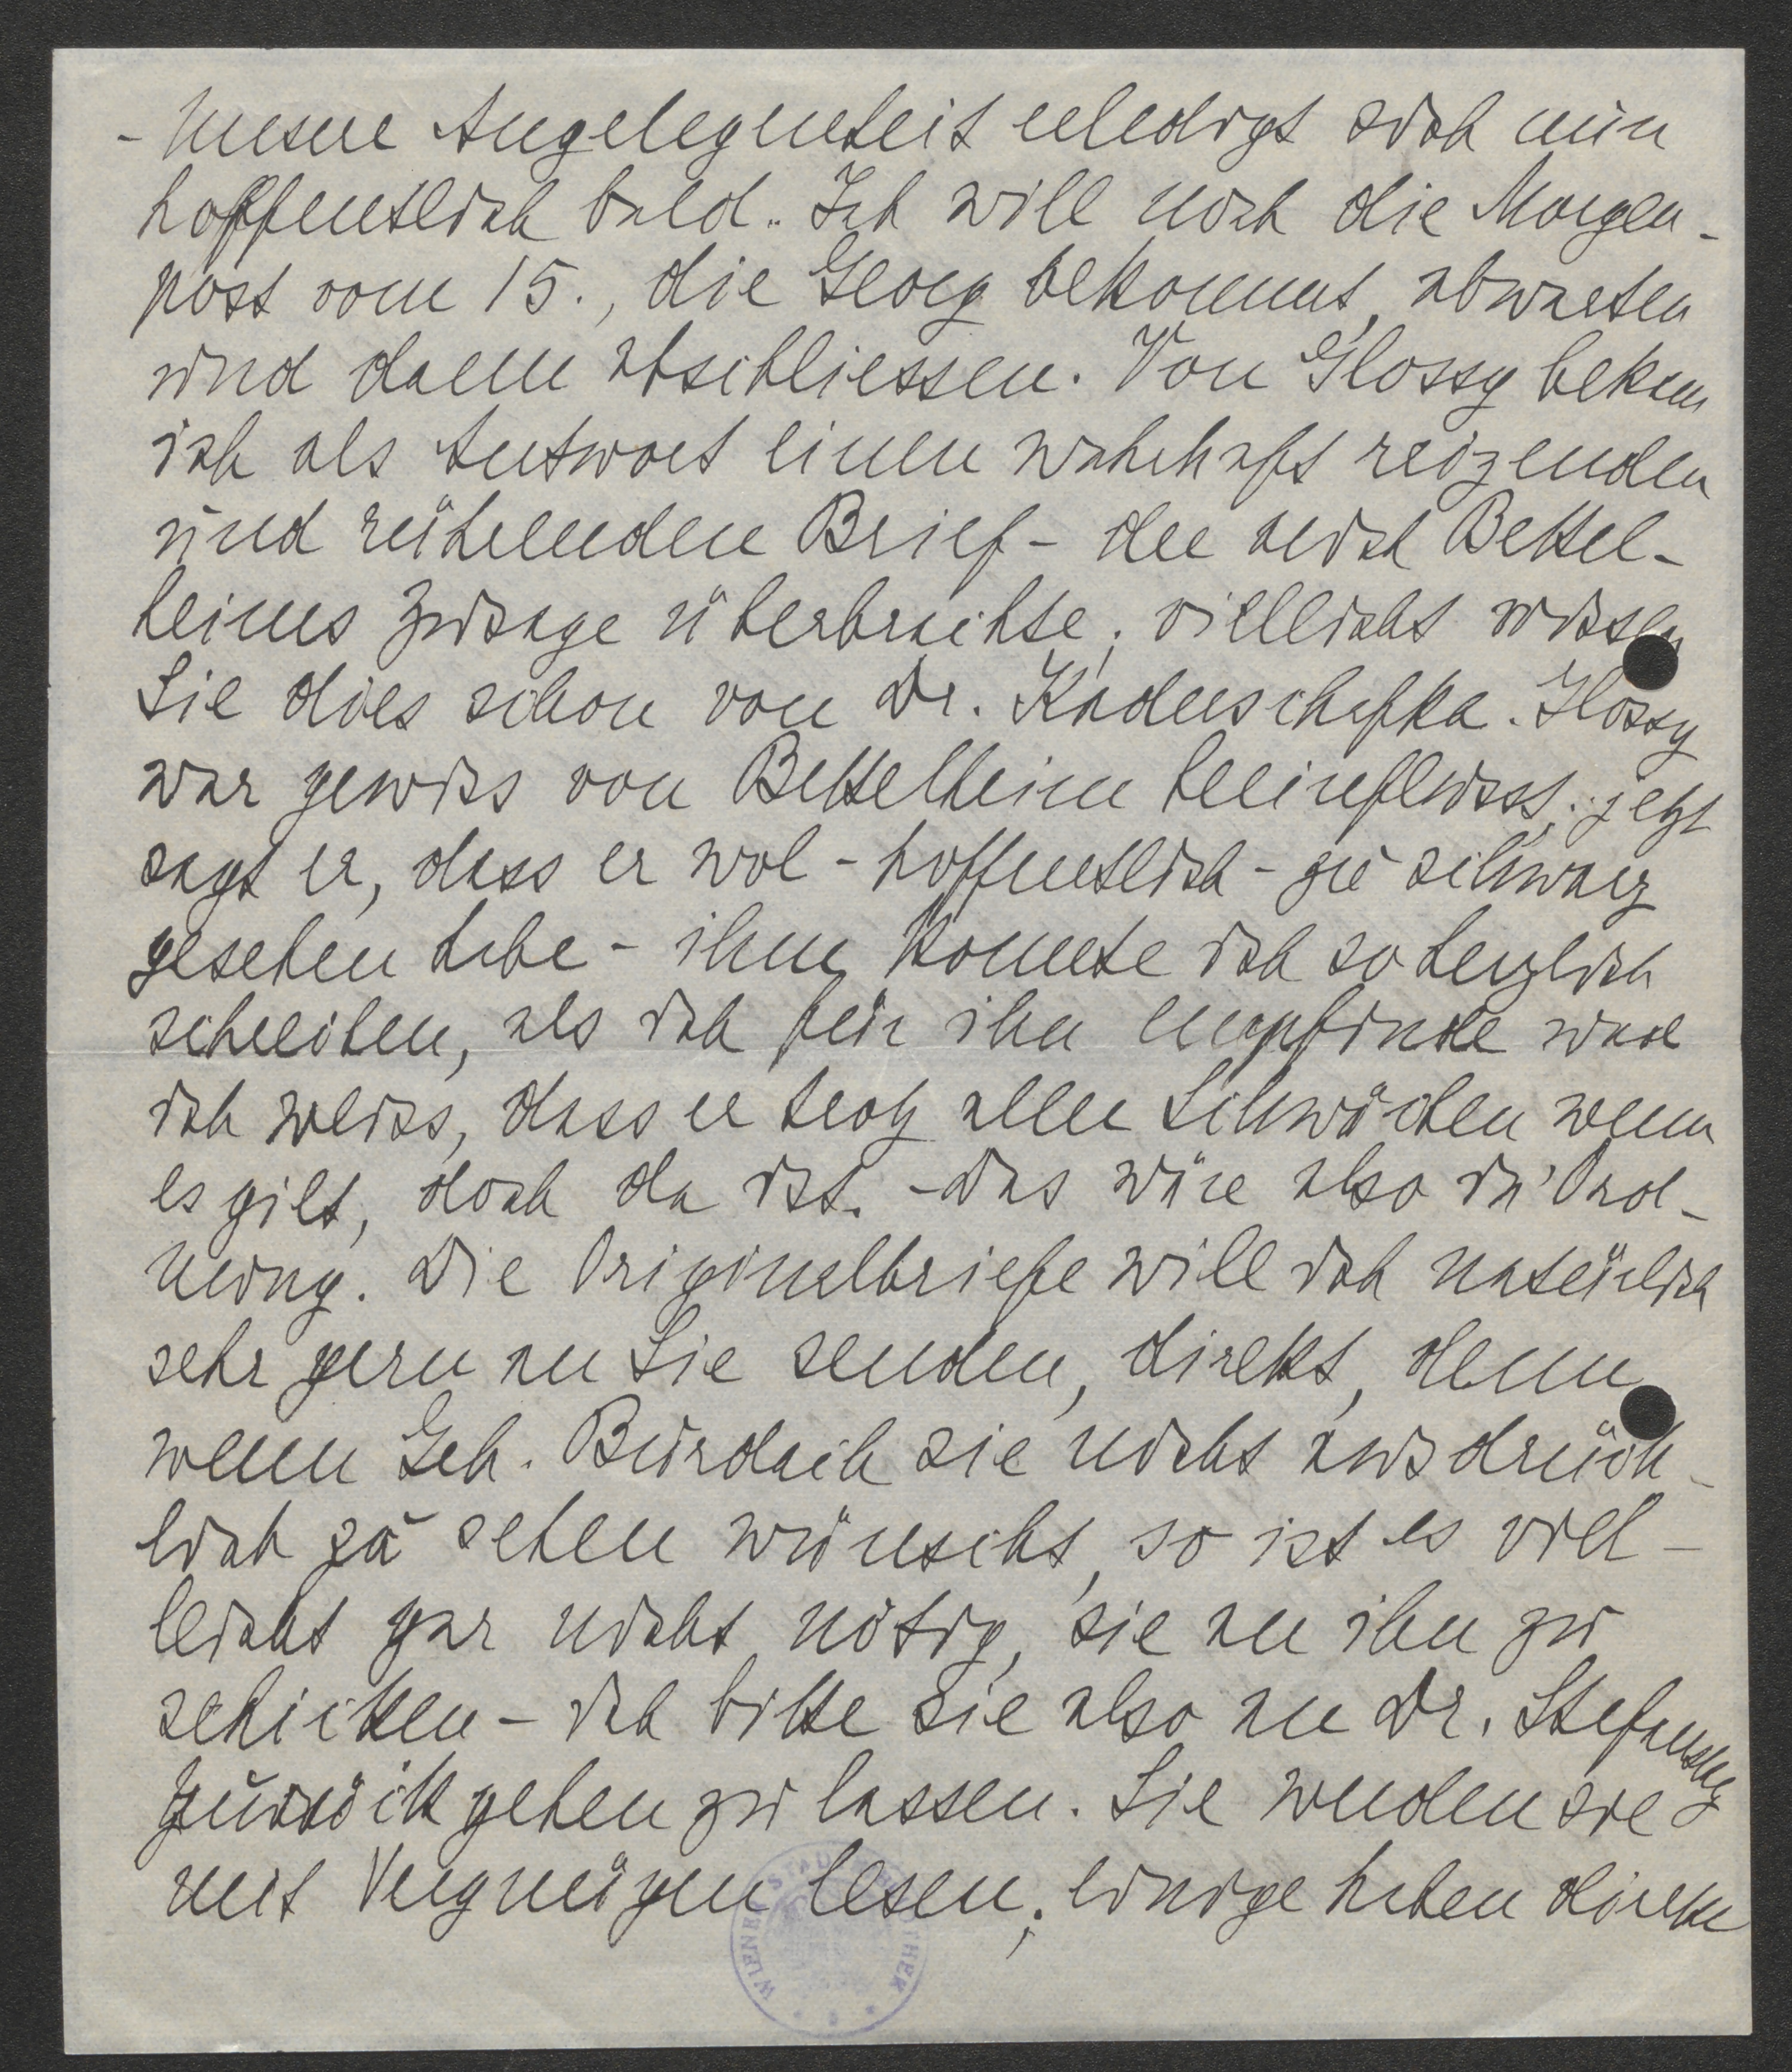 - Unsere Angelegenheit erledigt sich nun
hoffentlich bald. Ich will noch die Morgen-
post vom 15., die Georg bekommt, abwarten
und dann abschliessen. Von Glossy bekam
ich als Antwort einen wahrhaft reizenden
und rührenden Brief - der auch Bettel-
heims Zusage überbrachte; vielleicht wissen
Sie dies schon von Dr. Katuschafka. Glossy
war gewiss von Bettelheim beeinflusst; jetzt
sagt er, dass er wol - hoffentlich - zu schwarz
gesehen habe - ihm konnte ich so herzlich
schreiben, als ich für ihn empfinde und
ich weiss, dass er trotz aller Schwächen wenn
es gilt, doch da ist. - Das wäre also in Ord-
nung. Die Originalbriefe will ich natürlich
sehr gern an Sie senden, direkt, denn
wenn Geh. Burdach sie nicht ausdrück-
lich zu sehen wünscht, so ist es viel-
leicht gar nicht nötig, sie an ihn zu
schicken - ich bitte sie also an Dr. Stefansky
zurück gehen zu lassen. Sie werden sie
mit Vergnügen lesen; einige haben direkte
WIENER STADTBIBLIOTHEK